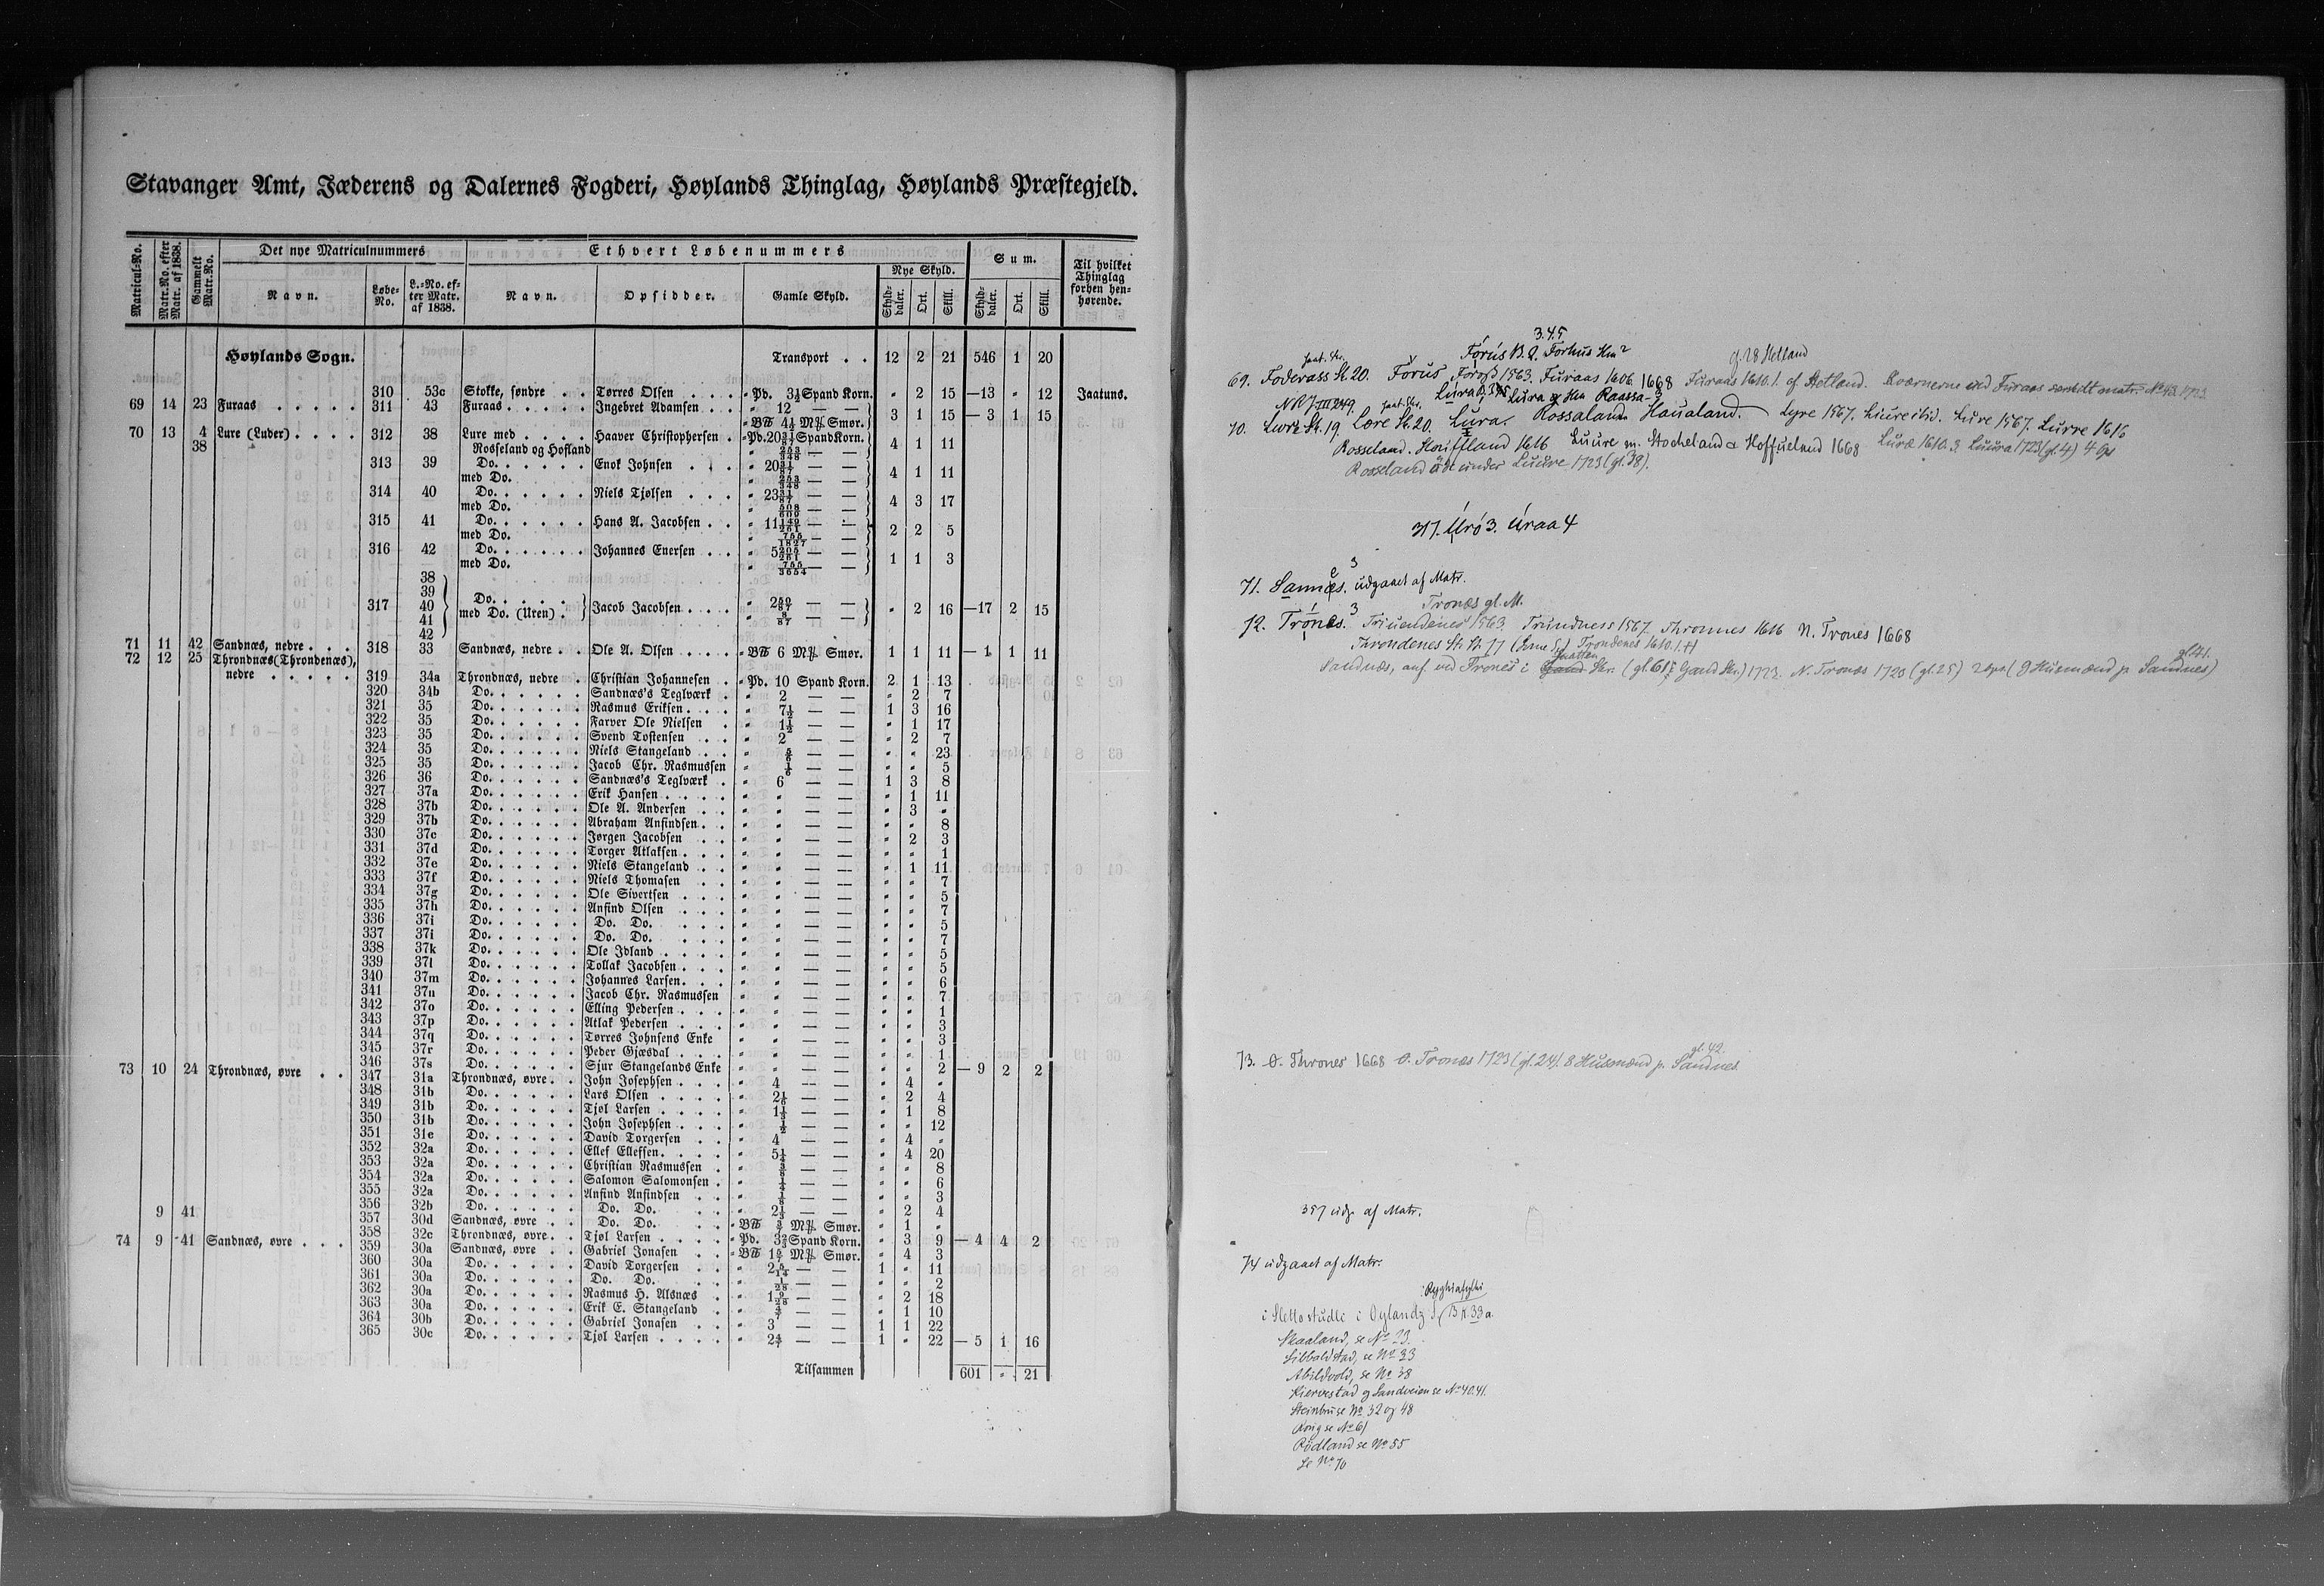 Stavanger Amt, Jæderens og Dalernes Fogderi, Høylands Thinglag, Høylands Præstegjeld.
Matricul-No. Matr.-No. efter Matr. af 1838. Gammelt Matr.-No. Det nye Matriculnummers Ethvert Løbenummers Sum. Til hvilket Thinglag forhen henhørende.
Navn. Løbe-No. L.-No. efter Matr. af 1838. Navn. Opsidder. Gamle Skyld. Nye Skyld. Skylddaler. Ort. Skill. Skylddaler. Ort. Skill.
Høylands Sogn. Transport . . 12 2 21 546 1 20
310 53c Stokke, søndre . . Tørres Olsen . . . . - Pd. 3½ Spand Korn. " 2 15 —13 " 12 Jaatuns.
69 14 23 Furaas . . . . . 311 43 Furaas . . . . . Ingebret Adamsen . . " 12 — — 3 1 15 — 3 1 15
- B℔ 4½ M℔ Smør.
70 13 4 Lure (Luder) . . . . 312 38 Lure med . . . . Haaver Christophersen . - Pd. 20 31/87 Spand Korn. 4 1 11
38 Rosseland og Hofland " 253/348 — —
313 39 Do. . . . . . Enok Johnsen . . . " 20 31/87 — — 4 1 11
med Do. " 253/348 — —
314 40 Do. . . . . . Niels Tjølsen . . . " 23 31/87 — — 4 3 17
med Do. " 508/609 — —
315 41 Do. . . . . . Hans A. Jacobsen . . " 11 149/261 — — 2 2 5
med Do. " 755/1827 — —
316 42 Do. . . . . . Johannes Enersen . . . " 5 205/261 — — 1 1 3
med Do. " 755/3654 — —
38
39
317 40 Do. . . . . . med Do. (Uren) . Jacob Jacobsen . . . . " 2 50/87 — — " 2 16 —17 2 15
41 " 8/87 — —
42
71 11 42 Sandnæs, nedre . . . 318 33 Sandnæs, nedre . . Ole A. Olsen . . . . - B℔ 6 M℔ Smør. 1 1 11 — 1 1 11
72 12 25 Throndnæs (Throndenæs),
nedre . . . . . 319 34a Throndnæs, nedre . Christian Johannesen . . - Pd. 10 Spand Korn. 2 1 13
320 34b Do. . . . . . Sandnæs's Teglværk . " 2 — — " 2 7
321 35 Do. . . . . . Rasmus Eriksen . . . . " 7½ — — 1 3 16
322 35 Do. . . . . . Farver Ole Nielsen . " 1½ — — " 1 17
323 35 Do. . . . . . Svend Tostensen . . . " 2 — — " 2 7
324 35 Do. . . . . . Niels Stangeland . . . " 5/6 — — " " 23
325 35 Do. . . . . . Jacob Chr. Rasmussen " 1/6 — — " " 5
326 36 Do. . . . . . Sandnæs's Teglværk . " 6 — — 1 3 8
327 37a Do. . . . . . Erik Hansen . . . . . " " — — " 1 11
328 37b Do. . . . . . Ole A. Andersen . . . " " — — " 3 "
329 37b Do. . . . . . Abraham Ansindsen . . " " — — " " 8
330 37c Do. . . . . . Jørgen Jacobsen . . . " " — — " 2 3
331 37d Do. . . . . . Torger Atlaksen . . . " " — — " " 1
332 37e Do. . . . . . Niels Stangeland . . . " " — — " 1 11
333 37f Do. . . . . . Niels Thomasen . . . " " — — " " 7
334 37g Do. . . . . . Ole Sivertsen . . . . " " — — " " 5
335 37h Do. . . . . . Ansind Olsen . . . . " " — — " " 7
336 37i Do. . . . . . Do. Do. . . . " " — — " " 5
337 37i Do. . . . . . Do. Do. . . . " " — — " " 7
338 37k Do. . . . . . Ole Idland . . . . . " " — — " " 5
339 37l Do. . . . . . Tollak Jacobsen . . . " " — — " " 5
340 37m Do. . . . . . Johannes Larsen . . . " " — — " " 6
341 37n Do. . . . . . Jacob Chr. Rasmussen " " — — " " 7
342 37o Do. . . . . . Elling Pedersen . . . " " — — " " 1
343 37p Do. . . . . . Atlak Pedersen . . . " " — — " " 3
344 37q Do. . . . . . Tørres Johnsens Enke " " — — " " 3
345 37r Do. . . . . . Peder Gjæsdal . . . . " " — — " " 1
346 37s Do. . . . . . Sjur Stangelands Enke " " — — " " 2 — 9 2 2
73 10 24 Throndnæs, øvre . . 347 31a Throndnæs, øvre . . John Josephsen . . . . " 4 — — " 4 "
348 31b Do. . . . . . Lars Olsen . . . . . " 2 1/6 — — " 2 4
349 31b Do. . . . . . Tjøl Larsen . . . . . " 1⅓ — — " 1 8
350 31b Do. . . . . . John Josephsen . . . . " ½ — — " " 12
351 31e Do. . . . . . David Torgersen . . . " 4 — — " 4 "
352 32a Do. . . . . . Ellef Elleffen . . . . " 5¼ — — " 4 20
353 32a Do. . . . . . Christian Rasmussen . " 3/8 — — " " 8
354 32a Do. . . . . . Salomon Salomonsen . " ¼ — — " " 6
355 32a Do. . . . . . Ansind Ansindsen . . " ⅛ — — " " 3
356 32b Do. . . . . . Do. Do. . . " 2⅓ — — " 2 4
9 41 357 30d Sandnæs, øvre . . Do. Do. . . - B℔ 3/7 M℔ Smør. " 1 "
358 32c Throndnæs, øvre . . Tjøl Larsen . . . . - Pd. 3⅔ Spand Korn. " 3 9 — 4 4 2
74 9 41 Sandnæs, øvre . . . 359 30a Sandnæs, øvre . . Gabriel Jonasen . . - B℔ 1 5/7 M℔ Smør. " 4 3
360 30a Do. . . . . . David Torgersen . . . " 2 5/14 — — 1 " 11
361 30a Do. . . . . . Do. Do. . . " 1/28 — — " " 2
362 30a Do. . . . . . Rasmus H. Alsnæs . . " 1 9/28 — — " 2 18
363 30a Do. . . . . . Erik E. Stangeland . . " 4/7 — — " 1 10
364 30b Do. . . . . . Gabriel Jonasen . . . " 3 — — 1 1 22
365 30c Do. . . . . . Tjøl Larsen . . . . . " 2 4/7 — — 1 " 22 — 5 1 16
Tilsammen 601 " 21
3.4.5
Forus B.2. Forhus Hm² g. 28 Hetland
69. Foderass St. 20. Forus, 1563. Furaas 1606. 1668 Furaas 1610.1. af Hetland. Kværnerne ved Furaas særskilt matr. No 43. 1723
NRJ III 249. Lura og Hm Raassa
70. Lure St. 19. Lære St. 20. Lura. Rossaland. Haualand. Lyre 1567. Luure ibid. Lure 1567. Lurre 1616
Rosseland. Houffland 1616 Luure m. Stocheland & Hoffueland 1668 Luræ 1610.3. Luura 1723 (gl. 4) 4 Ops
Rosseland öde under Luure 1723 (gl. 38).
317. Uró 3. Uraa 4
71. Sannes. 3 udgaaet af Matr.
Tronæs gl. M.
72. Trones. 3 Triuendenes 1563. Trundness 1567. Thronnes 1616 N. Trones 1668
Throndenes St. Trondenes 1610.1.
Sandnæs, anf. ved Trones i Gand Skr. (gl. 61 i Gand Skr.) 1723. N. Tronæs 1723 (gl. 25) 2 ops (9 Husmænd p. Sandnes) gl. 41.
73. O. Thrones 1668 O. Tronæs 1723 (gl. 24). 8 Husmænd p. Sandnes gl. 42.
357 udg. af Matr.
74 udgaaet af Matr.
Ryghiafylki
i Sletto studli i Oylandz s. BK. 33 a.
Skaaland, se No 23.
Sibbalstad, se No 33
Abildvold, se No 38
Kiervestad og Sandveien se No 40.41.
Steinbru se No 32 og 48
Krig se No 61
Rødland se No 55
Le No 70